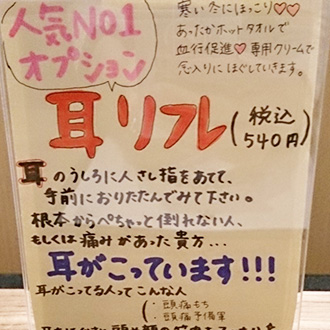 人気NO1
オプション
寒い冬にほっこり♡♡
あったかホットタオルで
血行促進♡専用クリームで
念入りにほぐしていきます。
耳リフレ(税込540円)
耳のうしろに人さし指をあてて、
手前におりたたんでみて下さい。
根本からぺちゃっと倒れない人、
もしくは痛みがあった貴方…
耳がこっています!!!
耳がこってる人ってこんな人
(・頭痛もち
・頭痛予備軍